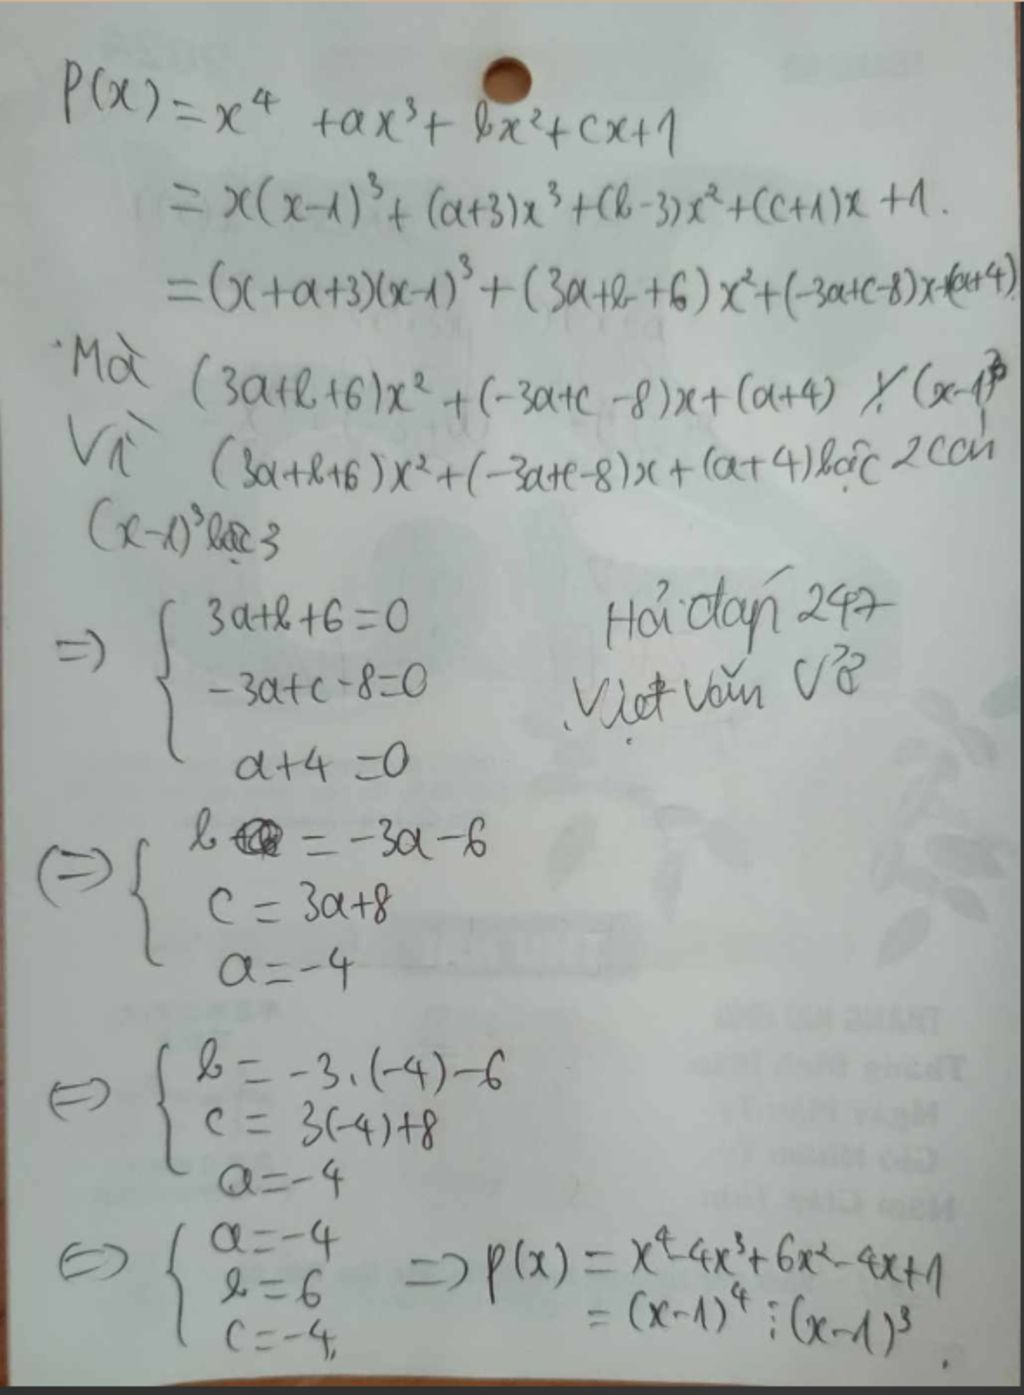 P(x) = x⁴ + ax³ + bx² + cx + 1
= x(x-1)³ + (a+3)x³ + (b-3)x² + (c+1)x + 1.
= (x+a+3)(x-1)³ + (3a+b+6)x² + (-3a+c-8)x + (a+4)
Mà (3a+b+6)x² + (-3a+c-8)x + (a+4) ⋮̸ (x-1)³
Vì (3a+b+6)x² + (-3a+c-8)x + (a+4) bậc 2 còn
(x-1)³ bậc 3
=> { 3a+b+6=0
-3a+c-8=0
a+4=0
Hỏi đáp 247
Việt Văn Vở
<=> { b = -3a-6
c = 3a+8
a=-4
<=> { b = -3.(-4)-6
c = 3(-4)+8
a=-4
<=> { a=-4
b=6
c=-4.
=> P(x) = x⁴-4x³+6x²-4x+1
= (x-1)⁴ ⋮ (x-1)³.